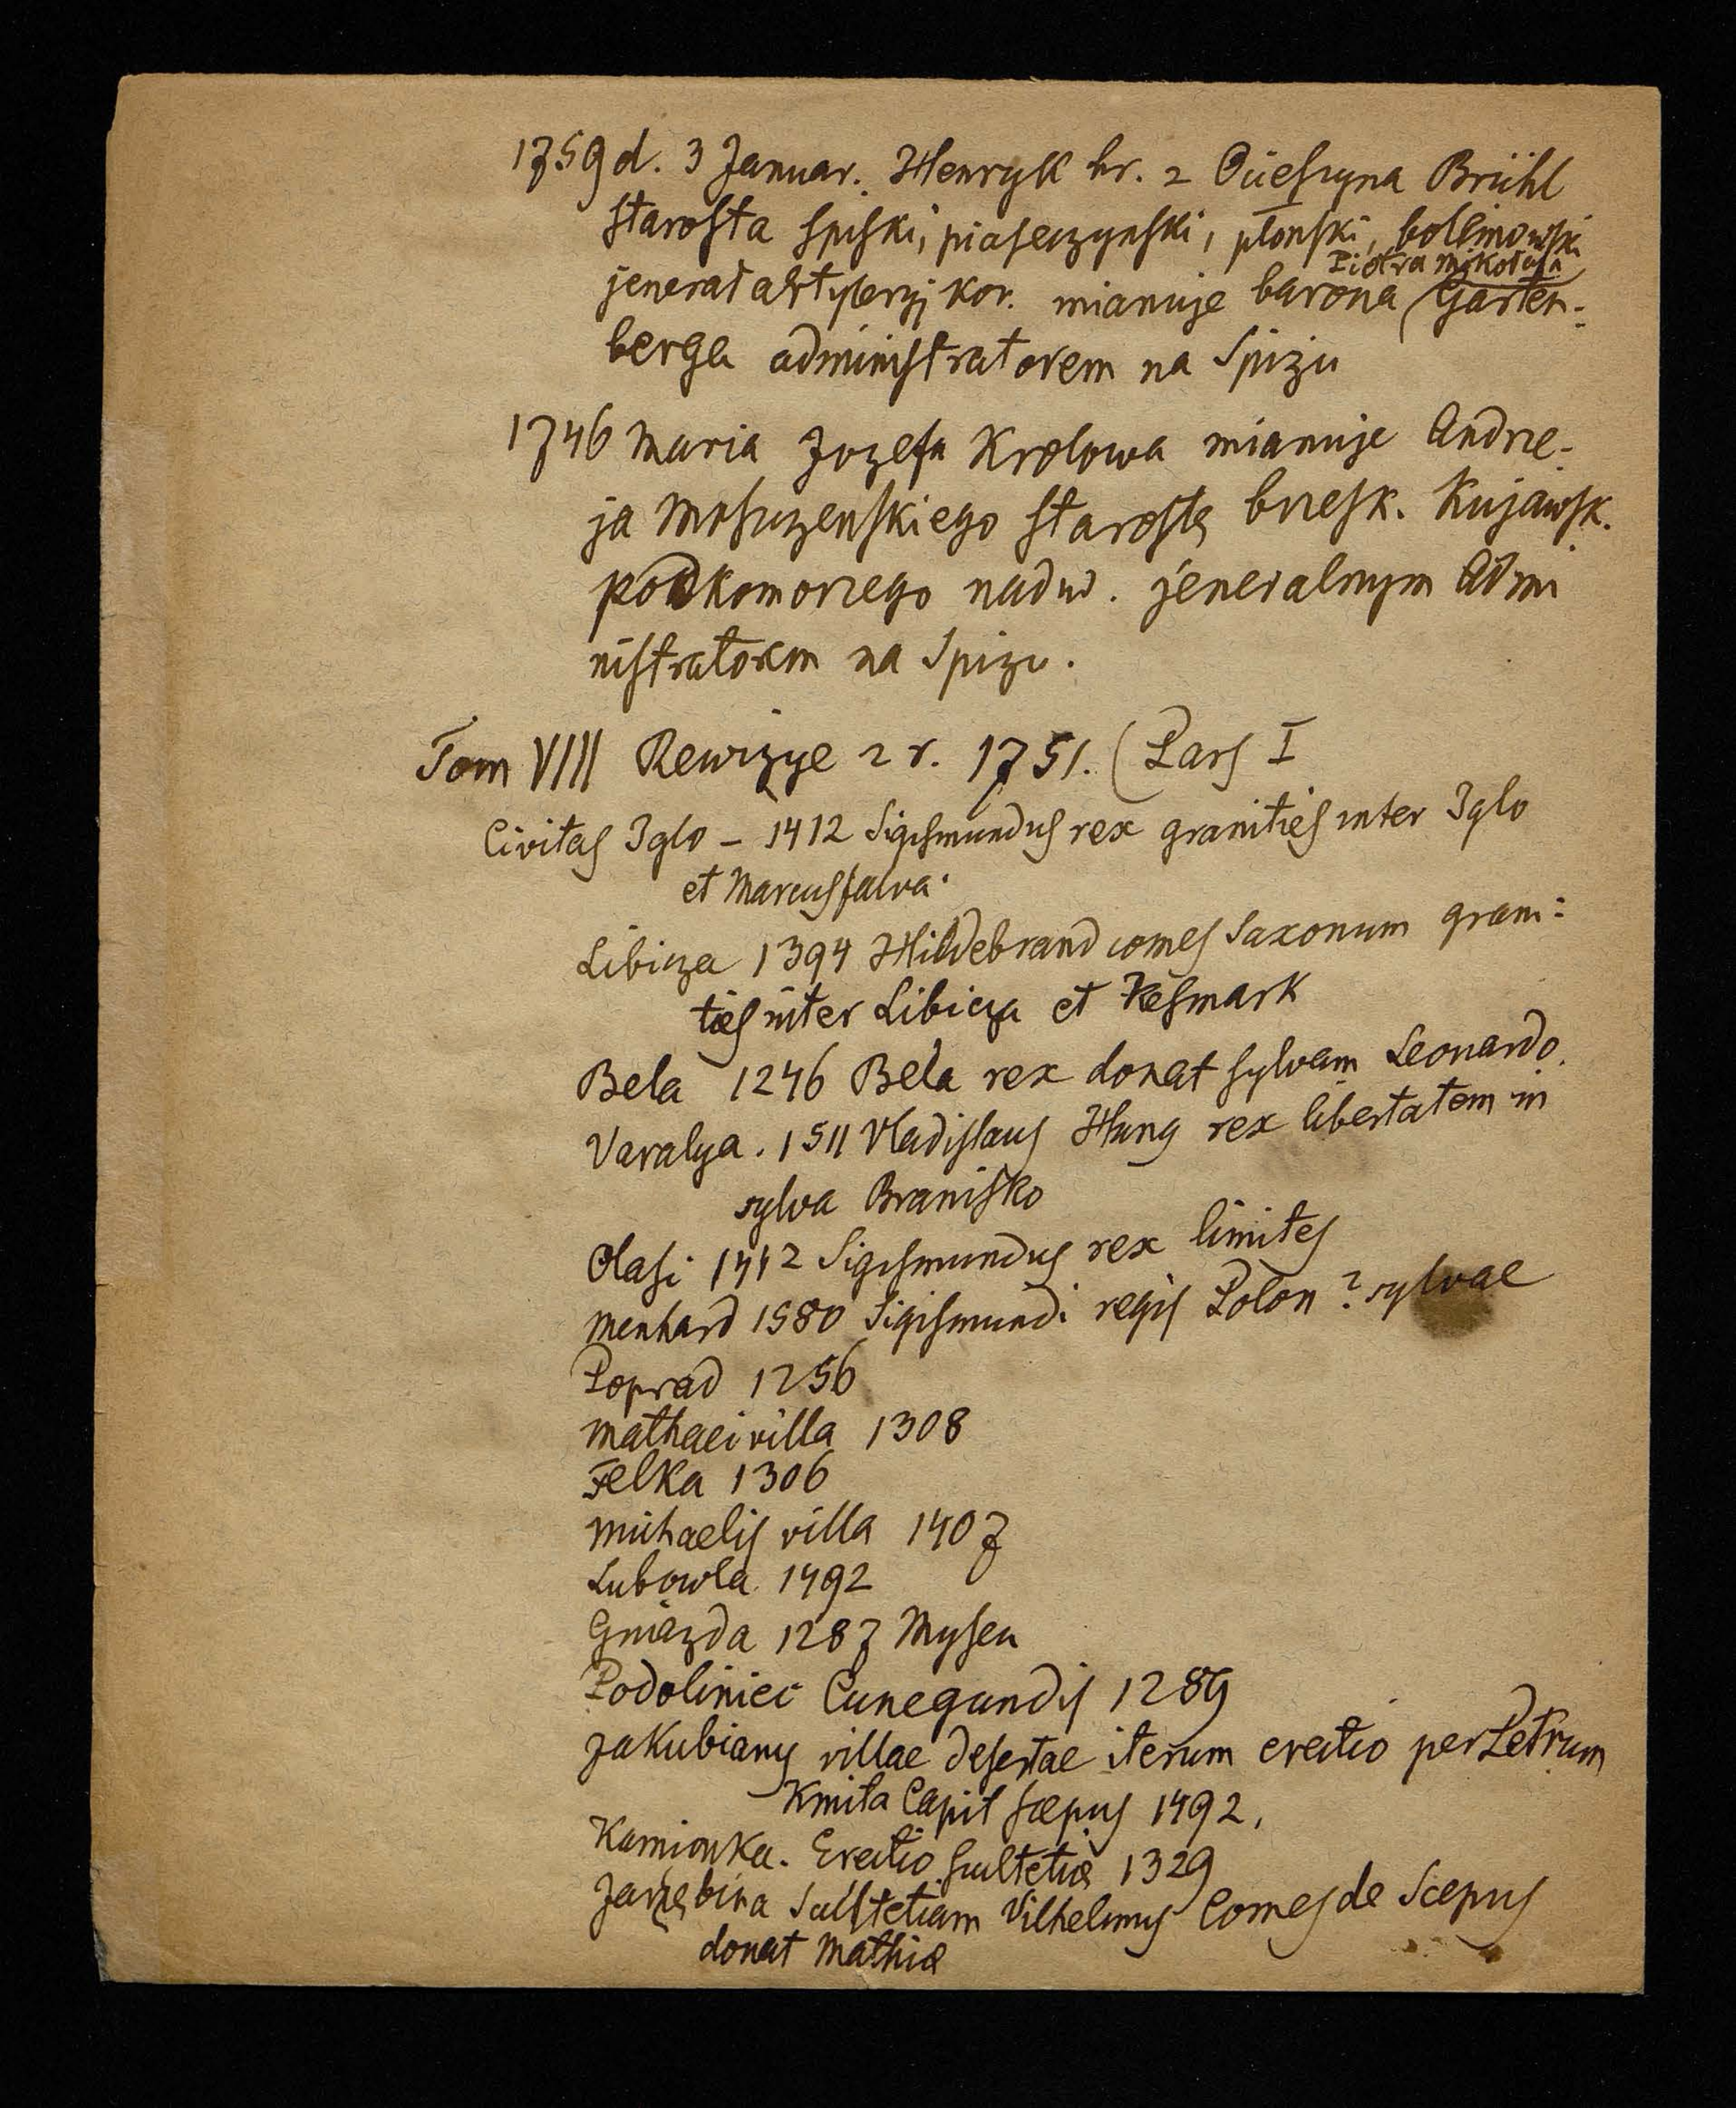 1759 d. 3 Januar. Henryk hr. z Ocieszyna Brühl
starosta spiski, piaseczynski, płonski, bolimowski
Piotra Mikołaja
jenerał artyleryj kor. mianuje barona (Garten-
berga administratorem na Spizu
1746 Maria Jozefa Krolowa mianuje Andrze-
ja Moszczenskiego starostę brzesk. Kujawsk.
podkomorzego nadw. jeneralnym Admi
nistratorem na Spizu.
Tom VIII Rewizye z r. 1751. (Pars I
Civitas Iglo - 1412 Sigismundus rex granities inter Iglo
et Marcusfalva.
Libicza 1394 Hildebrand comes Saxonum grani:
ties inter Libicza et Kesmark
Bela 1246 Bela rex donat sylvam Leonardo.
Varalya. 1511 Vladislaus Hung rex libertatem in
sylva Branisko
Olasi 1412 Sigismundus rex limites
Menhard 1580 Sigismundi regis Polon? sylvae
Poprad 1256
Mathaei villa 1308
Felka 1306
Michaelis villa 1407
Lubowla 1492
Gniazda 1287 Mysen
Podoliniec Cunegundis 1289
Jakubiany villae desertae iterum erectio per Petrum
Kmita Capit Scepus 1492.
Kamionka. Erectio scultetiæ 1329
Jarzębina Scultetiam Vilhelmus Comes de Scepus
donat Mathiæ